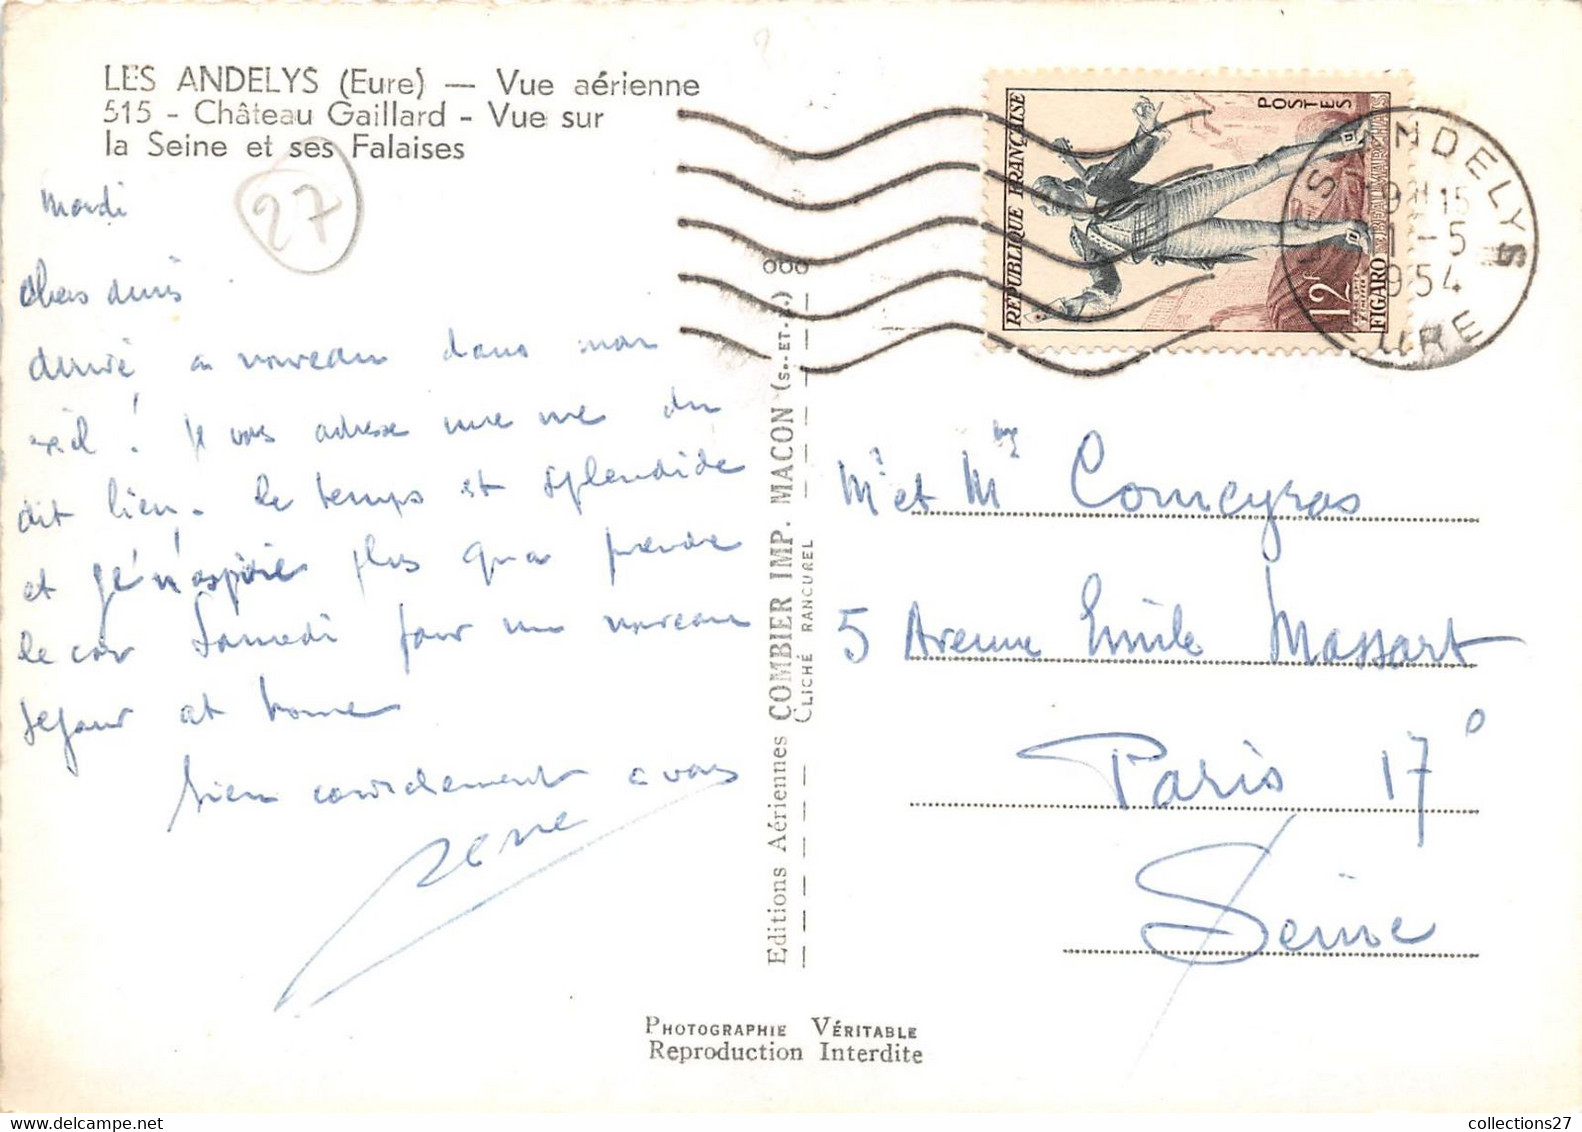 LES ANDELYS (Eure) — Vue aérienne
515 - Château Gaillard - Vue sur
la Seine et ses Falaises
27
Mardi
Chers amis
arrivé à nouveau dans mon
! je vous adresse une vue du
dit lieu. Le temps est splendide
et je n'aspire plus qu'a prendre
le car Samedi pour un nouveau
sejour at home
bien cordialement a vous
René
Editions Aériennes COMBIER IMP. MACON (S.-ET-L.)
CLICHÉ RANCUREL
PHOTOGRAPHIE VÉRITABLE
Reproduction Interdite
REPUBLIQUE FRANÇAISE
POSTES
BEAUMARCHAIS
FIGARO
12F
LES ANDELYS
19H15
-5
1954
EURE
Mr et Mme Comeyras
5 Avenue Emile Massart
Paris 17°
Seine
collections27